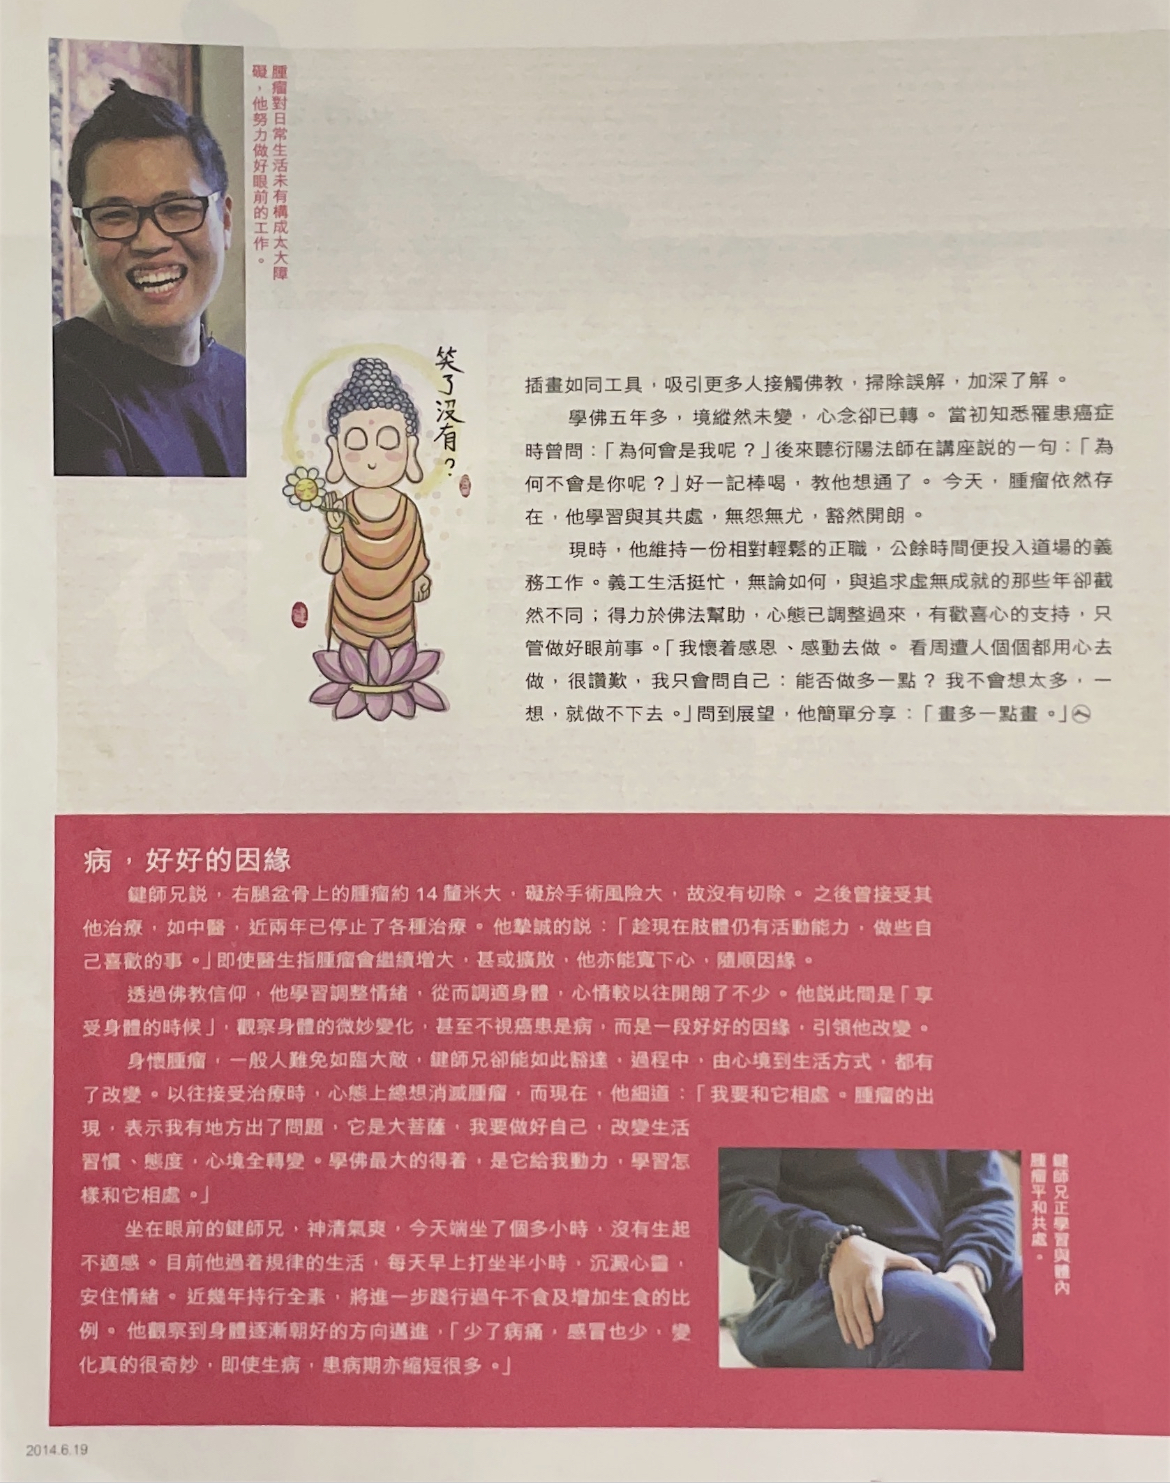 腫瘤對日常生活未有構成太大障
礙，他努力做好眼前的工作。
笑了沒有？
插畫如同工具，吸引更多人接觸佛教，掃除誤解，加深了解。
學佛五年多，境縱然未變，心念卻已轉。當初知悉罹患癌症
時曾問：「為何會是我呢？」後來聽衍陽法師在講座說的一句：「為
何不會是你呢？」好一記棒喝，教他想通了。今天，腫瘤依然存
在，他學習與其共處，無怨無尤，豁然開朗。
現時，他維持一份相對輕鬆的正職，公餘時間便投入道場的義
務工作。義工生活挺忙，無論如何，與追求虛無成就的那些年卻截
然不同；得力於佛法幫助，心態已調整過來，有歡喜心的支持，只
管做好眼前事。「我懷着感恩、感動去做。看周遭人個個都用心去
做，很讚歎，我只會問自己：能否做多一點？我不會想太多，一
想，就做不下去。」問到展望，他簡單分享：「畫多一點畫。」
病，好好的因緣
鍵師兄説，右腿盆骨上的腫瘤約 14 釐米大，礙於手術風險大，故沒有切除。之後曾接受其
他治療，如中醫，近兩年已停止了各種治療。他摯誠的説：「趁現在肢體仍有活動能力，做些自
己喜歡的事。」即使醫生指腫瘤會繼續增大，甚或擴散，他亦能寬下心，隨順因緣。
透過佛教信仰，他學習調整情緒，從而調適身體，心情較以往開朗了不少。他説此間是「享
受身體的時候」，觀察身體的微妙變化，甚至不視癌患是病，而是一段好好的因緣，引領他改變。
身懷腫瘤，一般人難免如臨大敵，鍵師兄卻能如此豁達，過程中，由心境到生活方式，都有
了改變。以往接受治療時，心態上總想消滅腫瘤，而現在，他細道：「我要和它相處。腫瘤的出
現，表示我有地方出了問題，它是大菩薩，我要做好自己，改變生活
習慣、態度，心境全轉變。學佛最大的得着，是它給我動力，學習怎
樣和它相處。」
坐在眼前的鍵師兄，神清氣爽，今天端坐了個多小時，沒有生起
不適感。目前他過着規律的生活，每天早上打坐半小時，沉澱心靈，
安住情緒。近幾年持行全素，將進一步踐行過午不食及增加生食的比
例。他觀察到身體逐漸朝好的方向邁進，「少了病痛，感冒也少，變
化真的很奇妙，即使生病，患病期亦縮短很多。」
鍵師兄正學習與體內
腫瘤平和共處。
2014.6.19